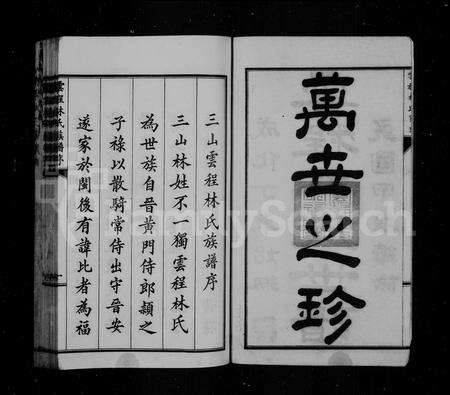 萬世之珍
三山雲程林氏族譜序
三山林姓不一獨雲程林氏
為世族自晉黃門侍郎頴之
子祿以散騎常侍出守晉安
遂家於閩後有諱比者為福